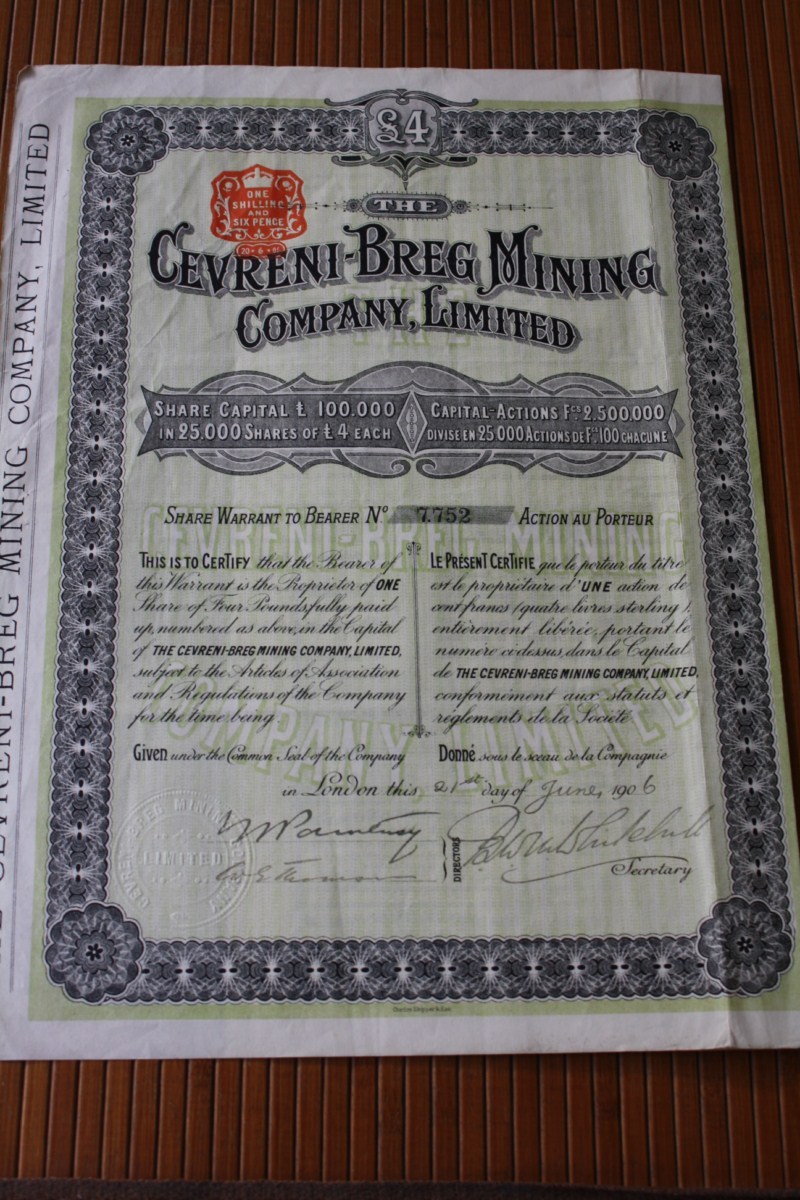 £4
ONE
SHILLING
AND
SIX PENCE
THE
CEVRENI-BREG MINING
COMPANY, LIMITED
SHARE CAPITAL £ 100.000
IN 25.000 SHARES OF £4 EACH
CAPITAL-ACTIONS Fcs 2,500,000
DIVISÉ EN 25 000 ACTIONS DE Fcs 100 CHACUNE
SHARE WARRANT TO BEARER No 7.752 ACTION AU PORTEUR
THIS IS TO CERTIFY that the Bearer of
this Warrant is the Proprietor of ONE
Share of Four Pounds fully paid
up, numbered as above, in the Capital
of THE CEVRENI-BREG MINING COMPANY, LIMITED,
subject to the Articles of Association
and Regulations of the Company
for the time being.
Given under the Common Seal of the Company
LE PRÉSENT CERTIFIE que le porteur du titre
est le propriétaire d'UNE action de
cent francs (quatre livres sterling),
entièrement libérée, portant le
numéro ci-dessus, dans le Capital
de THE CEVRENI-BREG MINING COMPANY, LIMITED,
conformément aux statuts et
règlements de la Société.
Donné sous le sceau de la Compagnie
in London this 21st day of June, 1906
DIRECTORS
Secretary
CEVRENI-BREG MINING COMPANY
LIMITED
CEVRENI-BREG MINING
COMPANY, LIMITED
CEVRENI-BREG MINING COMPANY, LIMITED